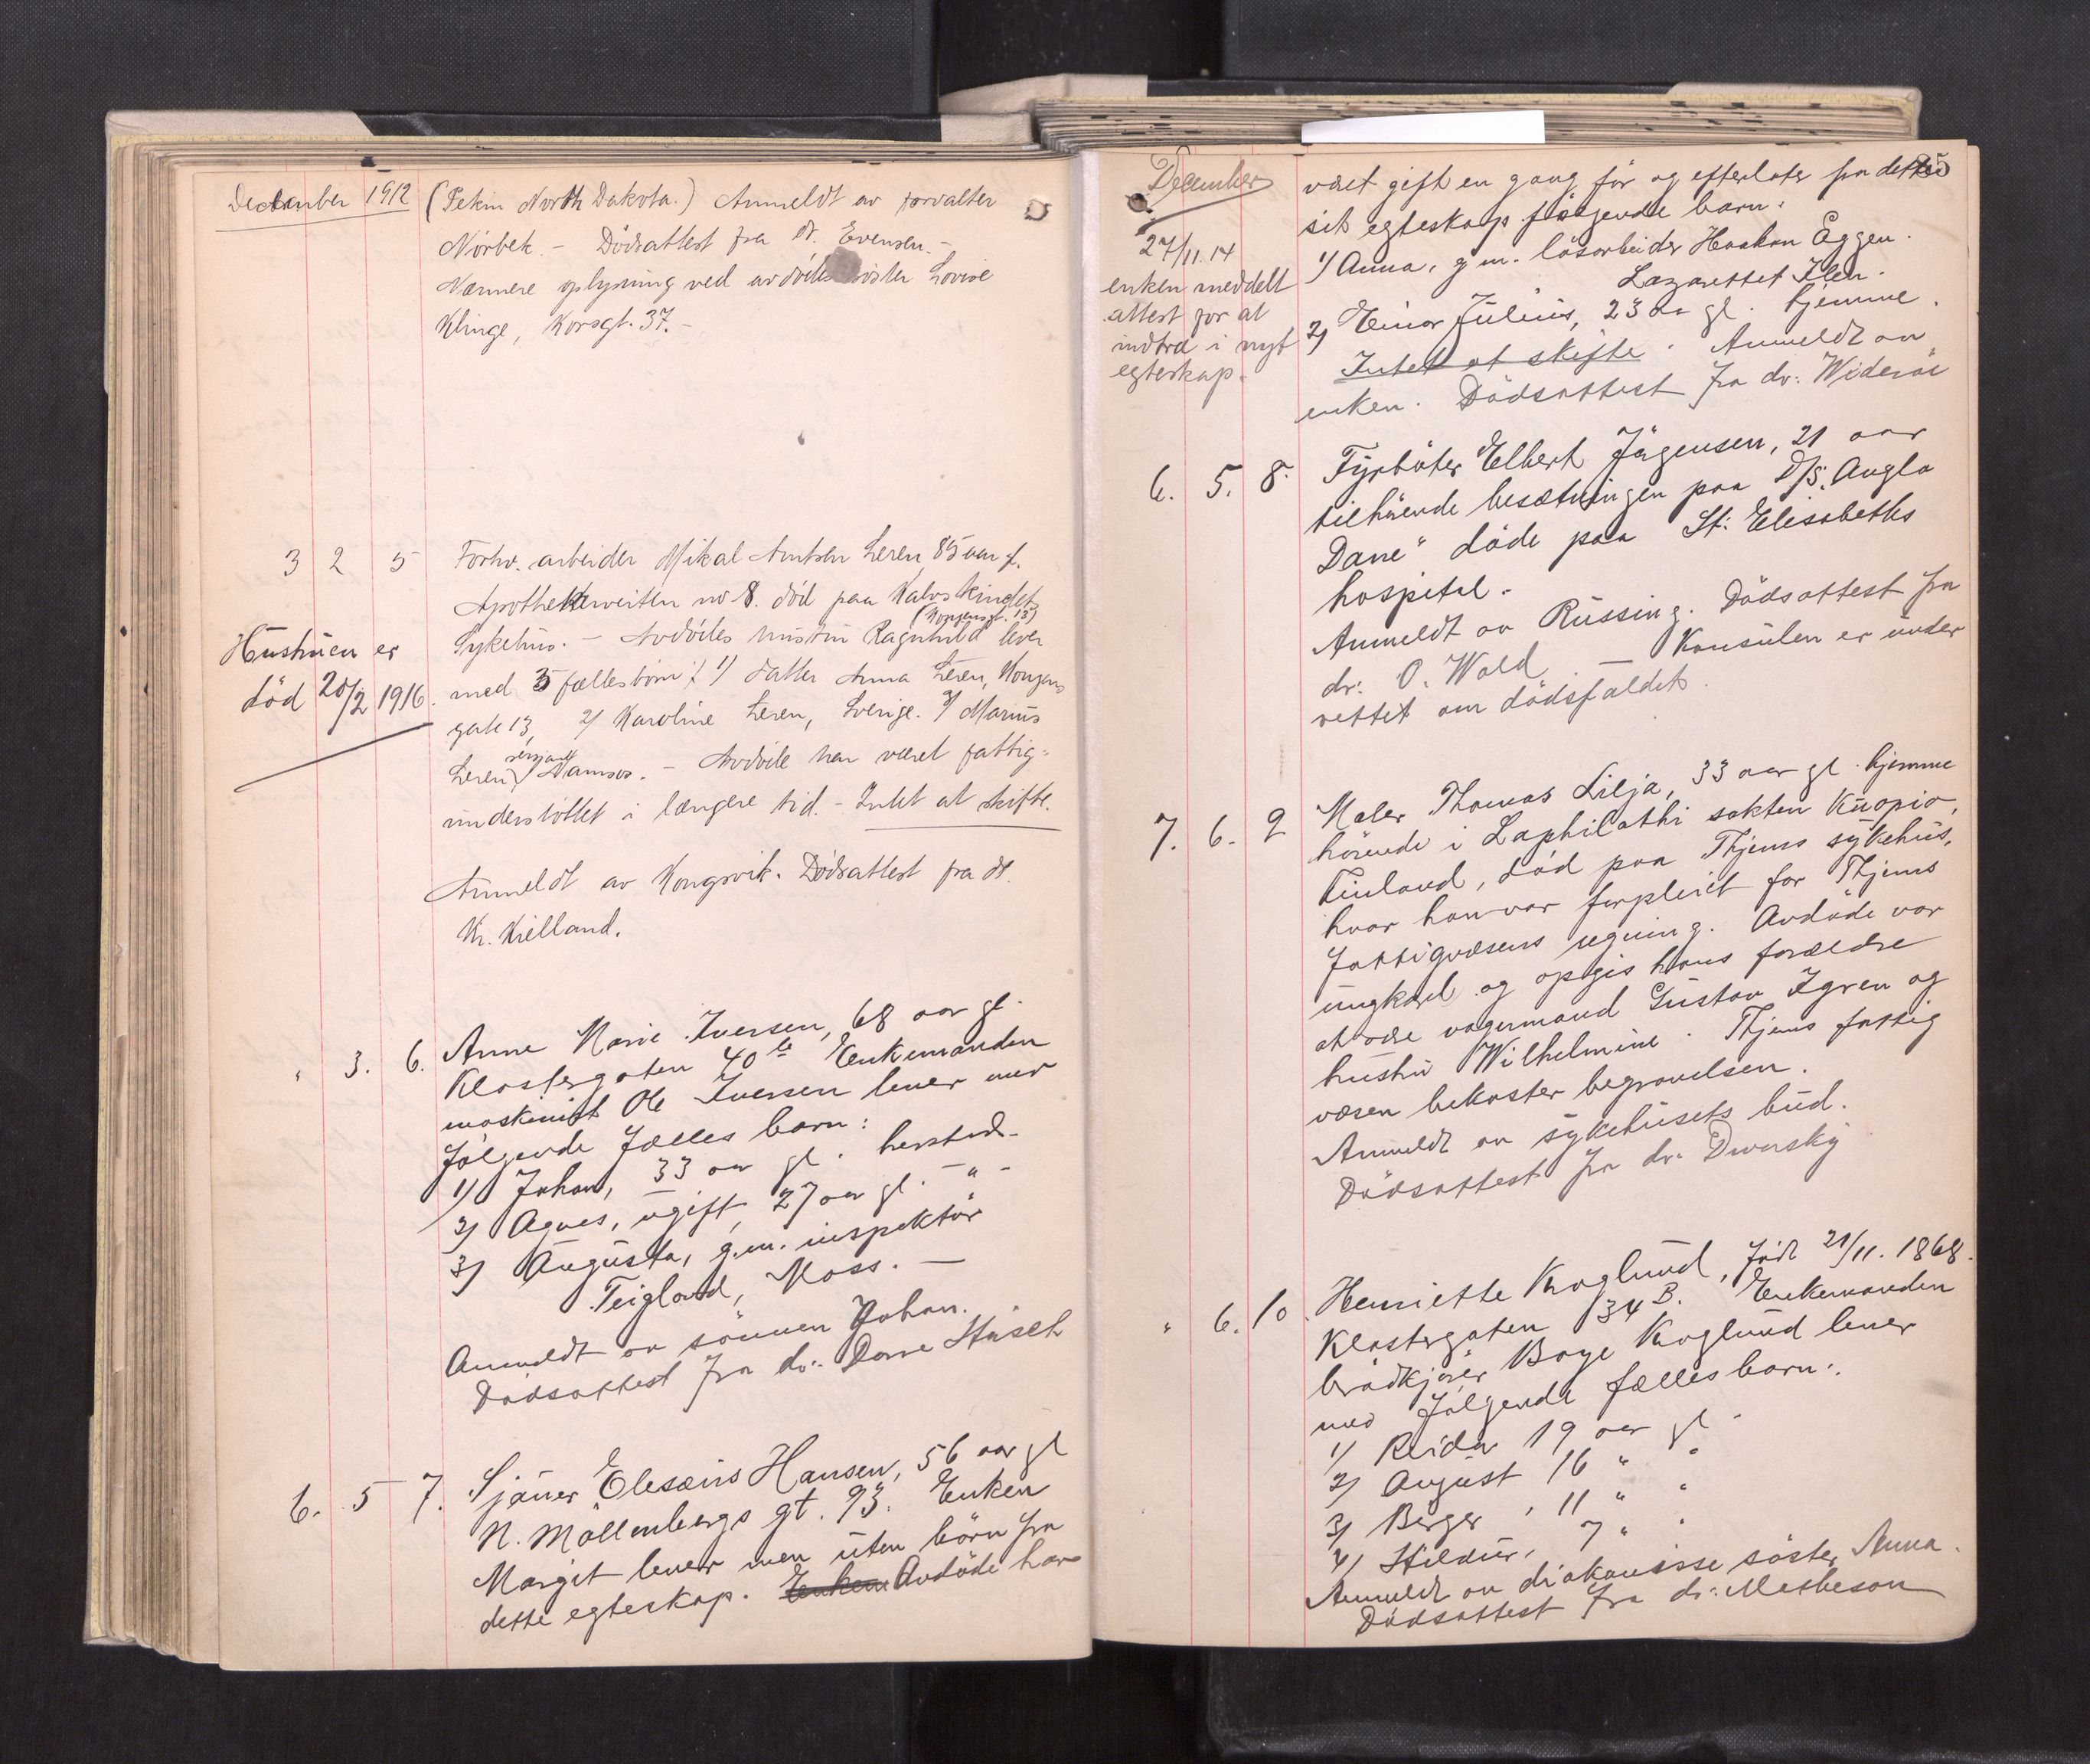 December 1912 (Pekin North Dakota.) Anmeldt av forvalter
Nörbek. - Dödsattest fra dr. Evensen. -
Nærmere oplysning ved avdödes söster Lovise
Klinge, Korsgt. 37. -
3 2 5 Forhv. arbeider Mikal Arntsen Leren, 85 aar gl.
Apothekerveiten no 8. död paa Kalvskindet
(Kongensgt. 13)
Sykehus. - Avdödes hustru Ragnhild lever
med 3 fællesbörn: 1) datter Anna Leren, Kongens
gate 13, 2) Karoline Leren, Sverige. 3) Marius
Leren, sersjant Namsos. - Avdöde har været fattig-
understöttet i længere tid. - Intet at skifte.
Hustruen er
död 20/2 1916.
Anmeldt av Kongsvik. Dödsattest fra dr.
Kr. Kielland.
" 3. 6. Anne Marie Iversen, 68 aar gl.
Klostergaten 40 Enkemanden
maskinist Ole Iversen lever med
følgende fælles barn:
1) Johan, 33 aar gl. hersteds
2) Agnes, ugift, 27 aar gl. - " -
3) Augusta, g.m. inspektör
Teigland, Moss. -
Anmeldt av sönnen Johan.
Dödsattest fra dr: Dorre Husch
6. 5 7. Sjöuer Elesæus Hansen, 56 aar gl
N. Möllenbergs gt. 93. Enken
Margit lever men uten börn fra
dette egteskap. Enken Avdöde har
December
25
været gift en gang för og efterlater fra dette
sit egteskap fölgende barn:
1) Anna, g.m. lösarbeider Haakon Eggen.
Lazarettet Ilen.
2) Einar Julius, 23 aar gl. hjemme.
Intet at skifte. Anmeldt av
enken. Dödsattest fra dr: Wideröe
27/11.14
enken meddelt
attest for at
indtræ i nyt
egteskap.
6. 5. 8. Fyrböter Elbert Jörgensen, 21 aar
tilhörende besætningen paa D/S. Anglo
Dane" döde paa St: Elisabeths
hospital.
Anmeldt av Russing. Dödsattest fra
dr: O. Wold - Konsulen er under
rettet om dödsfaldet.
7. 6. 9 Maler Thomas Lilja, 33 aar gl. hjemme
hörende i Laphilathi sokten Kuopio,
Finland, död paa Thjems sykehus,
hvor han var forpleiet for Thjems
fattigvæsens regning. Avdöde var
ungkarl og opgis hans forældre
at være vognmand Gustav Zgren og
hustru Wilhelmine. Thjems fattig
væsen bekoster begravelsen.
Anmeldt av sykehusets bud.
Dödsattest fra dr: Dworsky
" 6. 10. Henriette Kroglund, född 21/11. 1868.
Klostergaten 34 B. Enkemanden
brödkjörer Boye Kroglund lever
med fölgende fælles barn:
1) Reidar 19 aar gl.
2) August 16 " "
3) Birger, 11 " "
4) Hildur, 7 " "
Anmeldt av diakonisse söster Anna.
Dödsattest fra dr: Matheson